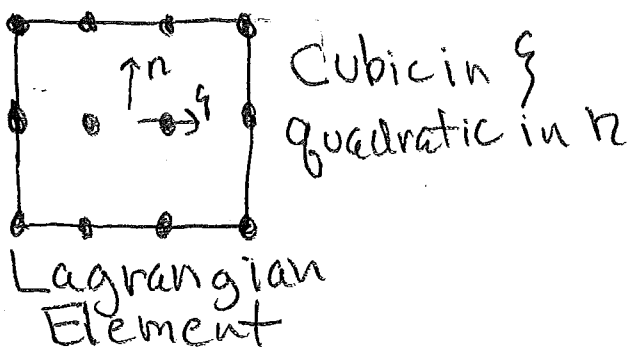 η
ξ
Cubic in ξ
quadratic in η
Lagrangian
Element